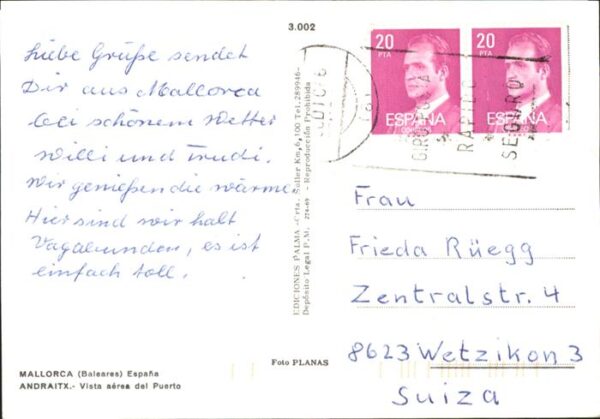 3.002
Liebe Grüße sendet
Dir aus Mallorca
bei schönem Wetter
Willi und Trudi.
Wir genießen die wärme
Hier sind wir halt
Vagabunden, es ist
einfach toll.
EDICIONES PALMA.-Crta. Soller Km,6,100 Tel.289946-
Depósito Legal P.M. Reproducción Prohibida
20
PTA
ESPAÑA
CORREOS
20
PTA
ESPAÑA
GIRO
RAPIDO
SEGURO
Frau
Frieda Rüegg
Zentralstr. 4
8623 Wetzikon 3
Suiza
Foto PLANAS
MALLORCA (Baleares) España
ANDRAITX.- Vista aérea del Puerto